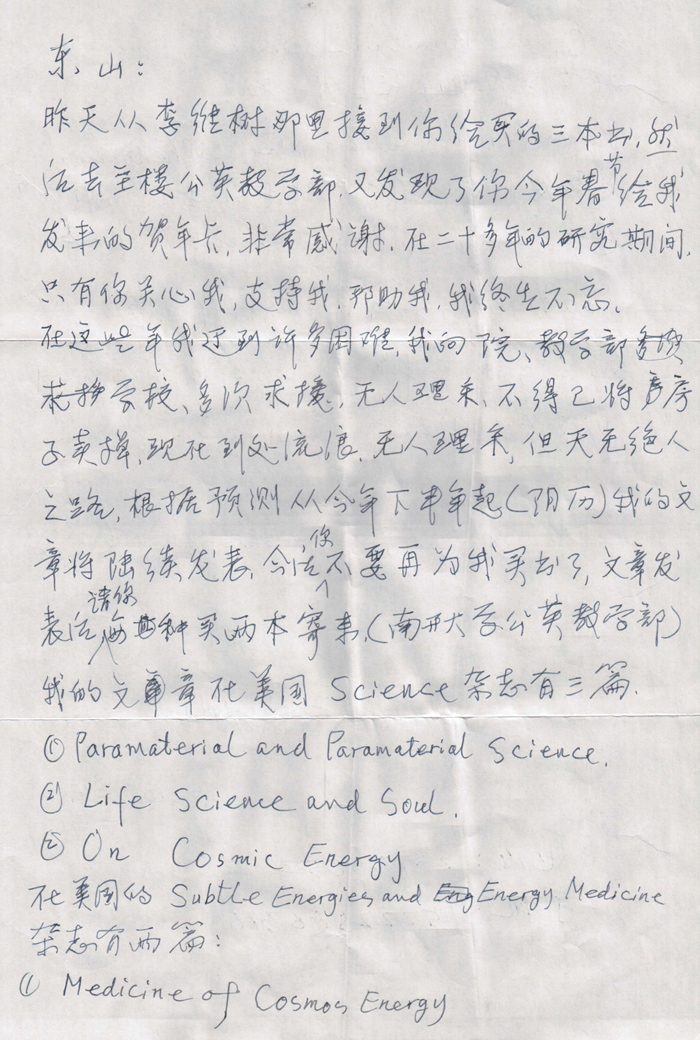 东山：
昨天从李继树那里接到你给买的三本书,然
后去主楼公英教学部,又发现了你今年春节给我
发来的贺年卡,非常感谢.在二十多年的研究期间,
只有你关心我,支持我,邦助我,我终生不忘。
在这些年我迂到许多困难,我向院、教学部
学校、多次求援,无人理采,不得已将房
子卖掉,现在到处流浪,无人理采,但天无绝人
之路,根据预测从今年下半年起(阴历)我的文
章将陆续发表,今后你不要再为我买书了,文章发
表后请你每种买两本寄来,(南开大学公英教学部)
我的文章在美国 Science 杂志有三篇.
① Paramaterial and Paramaterial Science.
② Life Science and Soul.
② On Cosmic Energy
在美国的 Subtle Energies and Energy Medicine
杂志有两篇：
① Medicine of Cosmos Energy